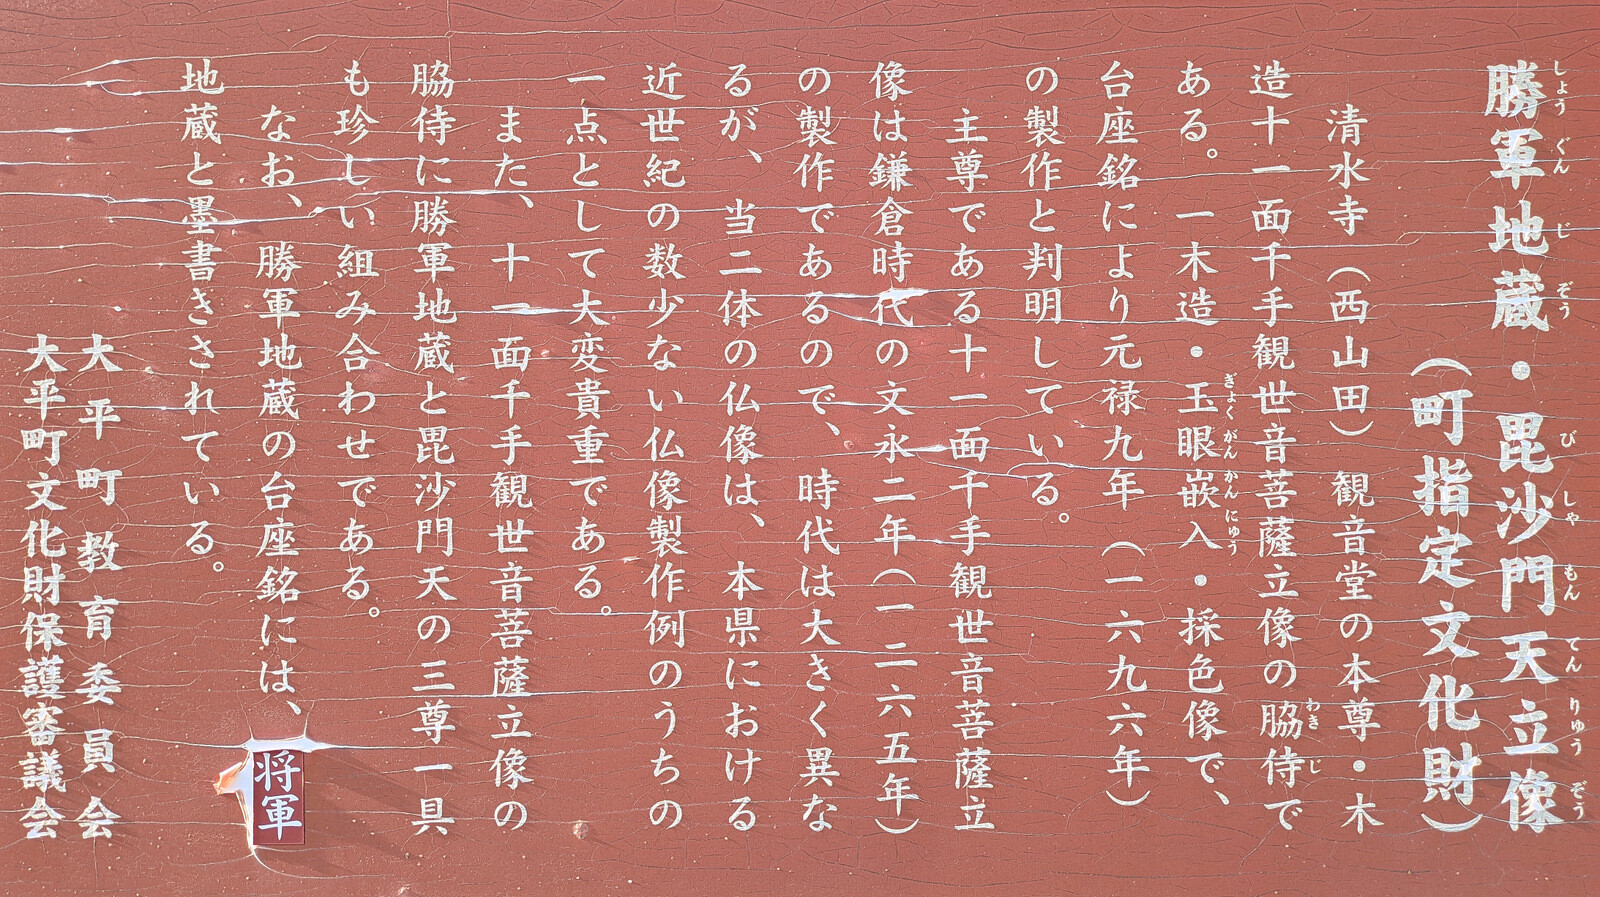 勝軍地蔵・毘沙門天立像
しょうぐんじぞう びしゃもんてんりゅうぞう
（町指定文化財）
清水寺（西山田）観音堂の本尊・木
造十一面千手観世音菩薩立像の脇侍で
わきじ
ある。一木造・玉眼嵌入・採色像で、
ぎょくがんかんにゅう
台座銘により元禄九年（一六九六年）
の製作と判明している。
主尊である十一面千手観世音菩薩立
像は鎌倉時代の文永二年（一二六五年）
の製作であるので、時代は大きく異な
るが、当二体の仏像は、本県における
近世紀の数少ない仏像製作例のうちの
一点として大変貴重である。
また、十一面千手観世音菩薩立像の
脇侍に勝軍地蔵と毘沙門天の三尊一具
も珍しい組み合わせである。
なお、勝軍地蔵の台座銘には、将軍
地蔵と墨書きされている。
大平町教育委員会
大平町文化財保護審議会